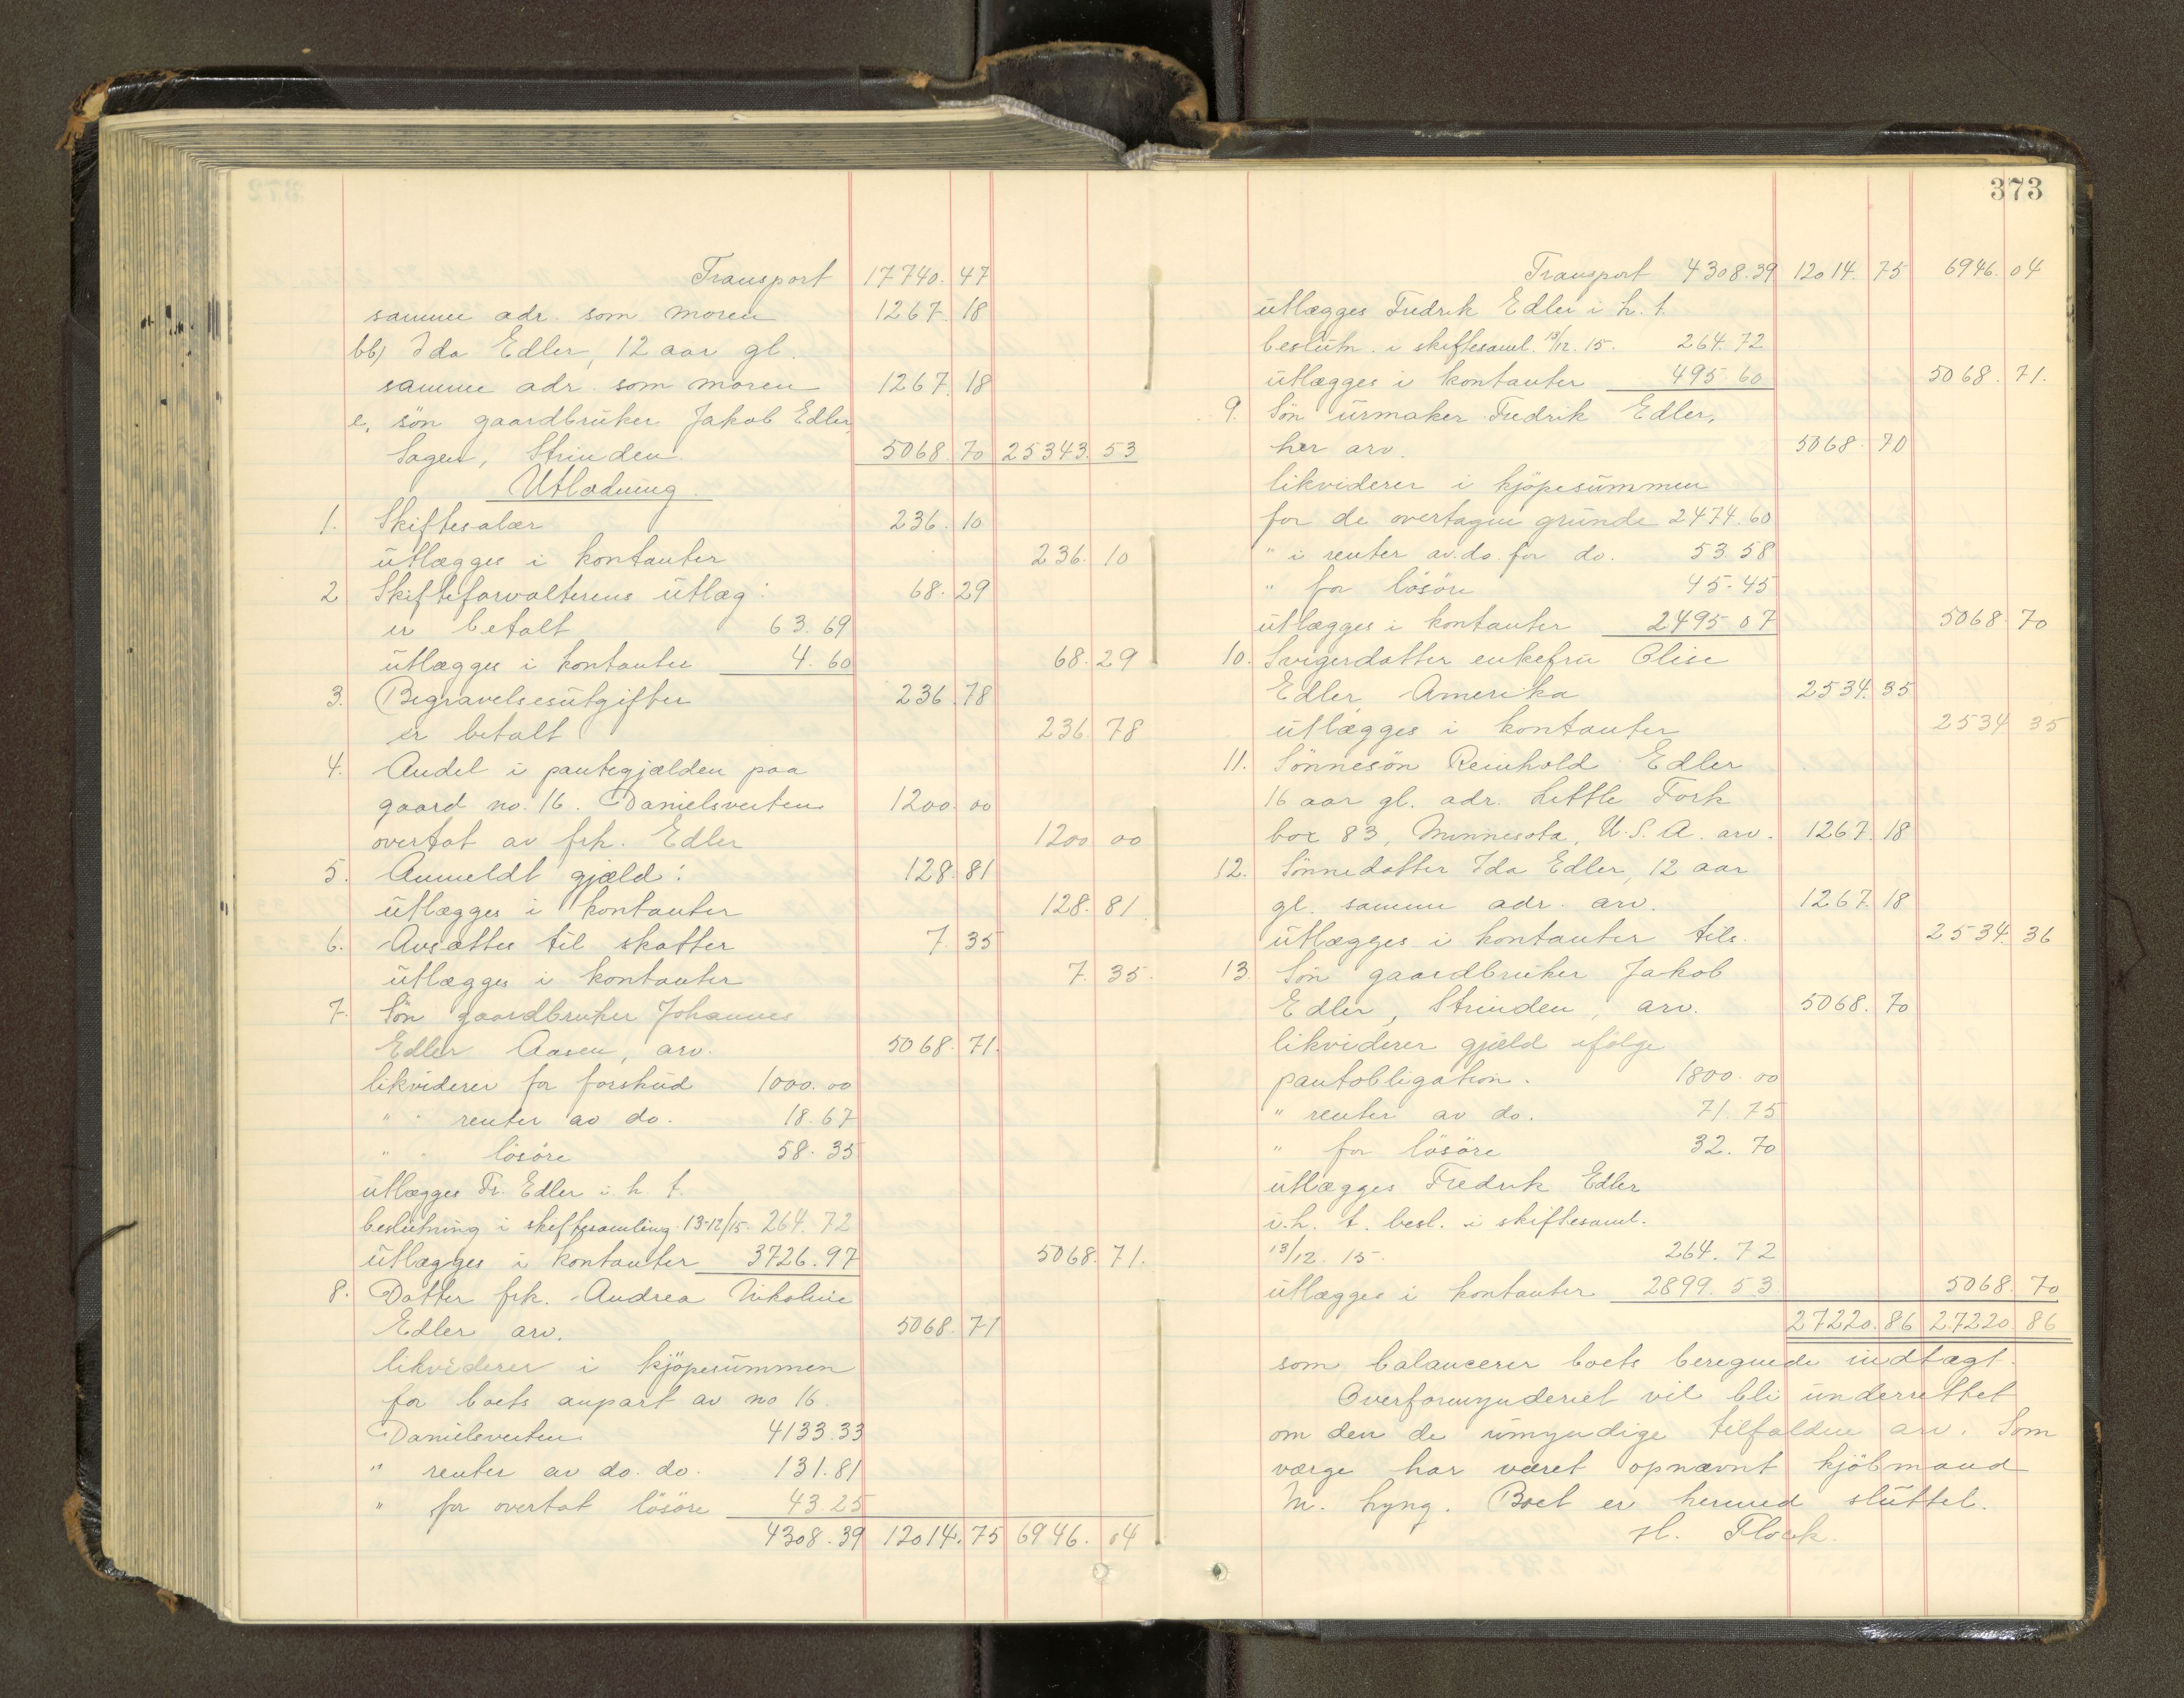 Transport 17740. 47
samme adr. som moren 1267. 18
bb) Ida Edler, 12 aar gl.
samme adr. som moren 1267. 18
e, sön gaardbruker Jakob Edler,
Sagen, Strinden. 5068. 70 25343. 53
Utlodning
1. Skiftesalær 236. 10
utlægges i kontanter 236. 10
2 Skifteforvalterens utlæg: 68. 29
er betalt 63. 69
utlægges i kontanter 4. 60 68. 29
3. Begravelsesutgifter 236. 78
er betalt 236. 78
4. Andel i pantegjælden paa
gaard no. 16. Danielsveiten 1200. 00
overtat av frk. Edler 1200 00
5. Anmeldt gjæld: 128. 81
utlægges i kontanter 128. 81
6. Avsættes til skatter 7. 35
utlægges i kontanter 7. 35.
7. Sön gaardbruker Johannes
Edler Aasen, arv. 5068. 71.
likviderer for forskud 1000. 00
" " renter av do. 18. 67
" " lösöre 58. 35
utlægges Fr. Edler i h. t.
beslutning i skiftesamling 13-12/15. 264. 72
utlægges i kontanter 3726. 97 5068. 71.
8. Datter frk. Andrea Nikoline
Edler arv. 5068. 71
likviderer i kjöpesummen
for boets anpart av no 16.
Danielsveiten 4133. 33
" renter av do. do. 131. 81
" for overtat lösöre 43. 25
4308. 39 12014. 75 6946. 04
373
Transport 4308. 39 12014. 75 6946. 04
utlægges Fredrik Edler i h. t.
beslutn. i skiftesaml. 13/12. 15. 264. 72
utlægges i kontanter 495. 60 5068. 71.
9. Sön urmaker Fredrik Edler,
her arv. 5068. 70
likviderer i kjöpesummen
for de overtagne grunde 2474. 60
" i renter av. do. for do. 53. 58
" for lösöre 45. 45
utlægges i kontanter 2495 07 5068 70
10. Svigerdatter enkefru Olise
Edler, Amerika 2534. 35
utlægges i kontanter 2534 35
11. Sönnesön Reinhold Edler
16 aar gl. adr. Little Fork
box 83, Minnesota, U. S. A. arv. 1267. 18
12. Sönnedatter Ida Edler, 12 aar
gl. samme adr. arv. 1267. 18
utlægges i kontanter tils. 2534. 36
13. Sön gaardbruker Jakob
Edler, Strinden, arv. 5068. 70
likviderer gjæld ifölge
pantobligation. 1800. 00
" renter av do. 71. 75
" for lösöre 32. 70
utlægges Fredrik Edler
i. h. t. besl. i skiftesaml.
13/12. 15. 264. 72
utlægges i kontanter 2899. 53 5068. 70
27220. 86 27220 86
som balancerer boets beregnede indtægt.
Overformynderiet vil bli underrettet
om den de umyndige tilfaldne arv. Som
værge har været opnævnt kjöbmand
M. Lyng. Boet er hermed sluttet.
Flock.